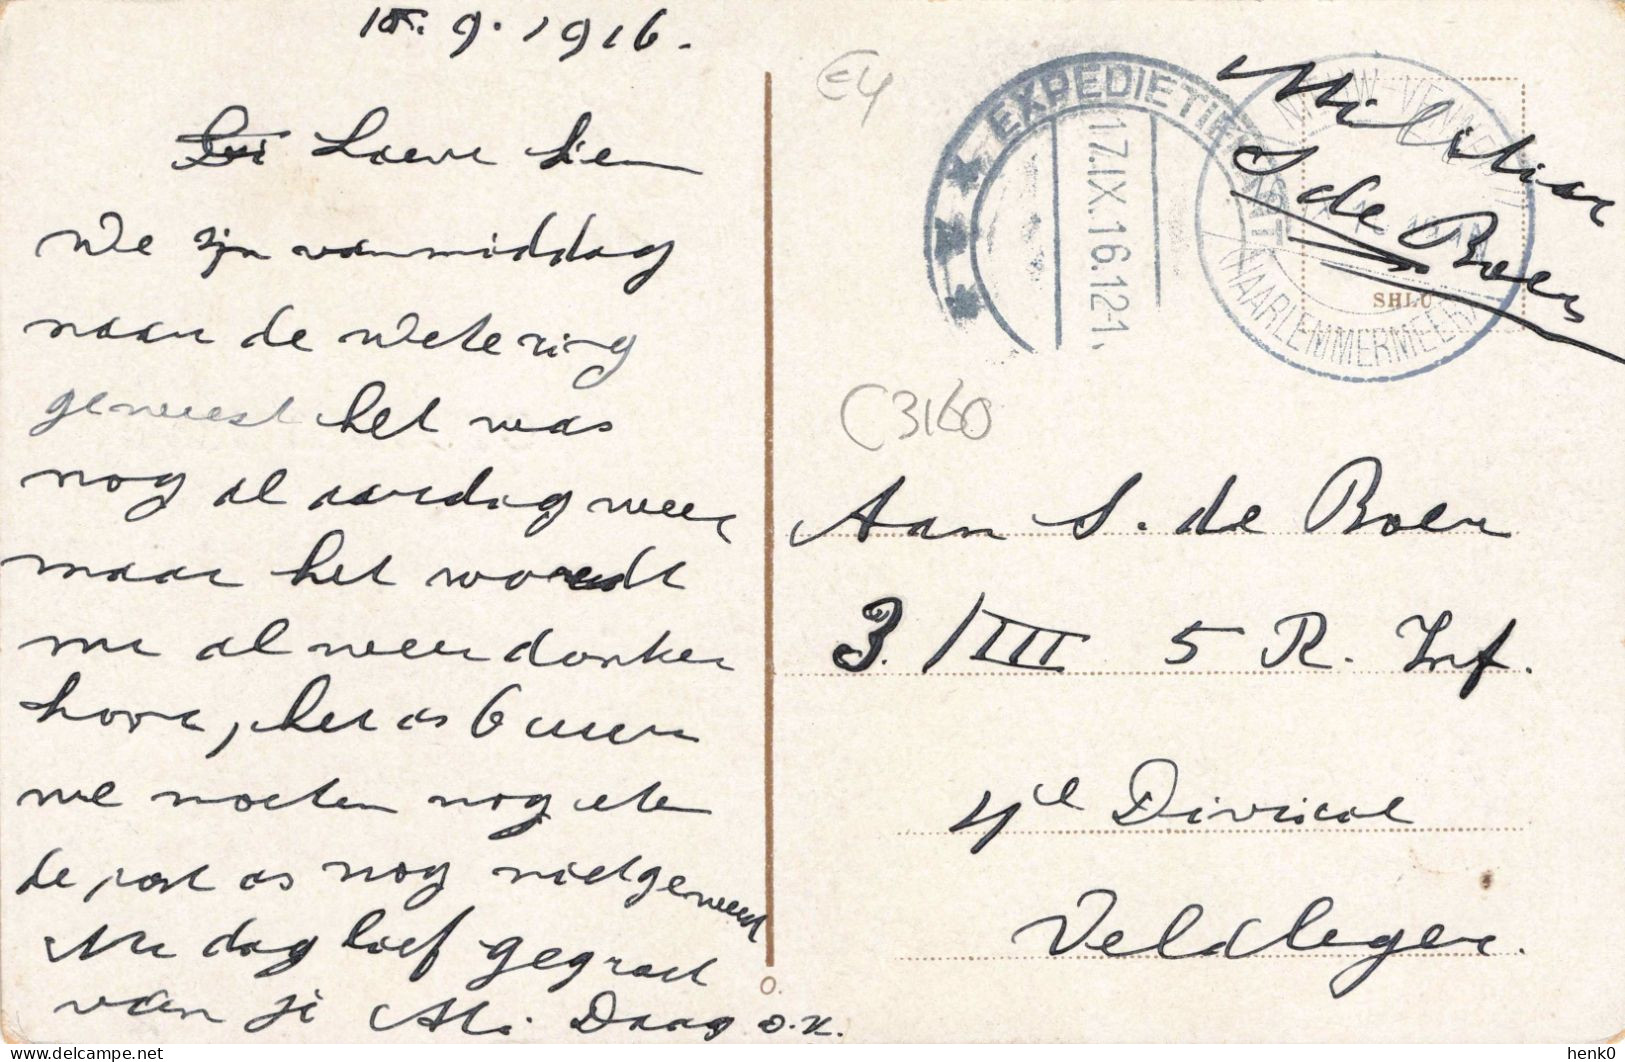 9.1916.
Lieve Sien
We zijn vanmiddag
naar de Wetering
geweest het was
nog al aardag weer
maar het wordt
nu al weer donker
hoor, het is 6 uur
we moeten nog eten
de post is nog niet geweest
Nu dag lief gegroet
van je Ali. Daag O.K.
E4
EXPEDITIE
17.IX.16.12-1.
(HAARLEMMERMEER)
Militair
S de Boer
SHLU
C3160
Aan S. de Boer
3./III 5 R. Inf.
4de Divisie
Veldleger.
O.
henk0
delcampe.net